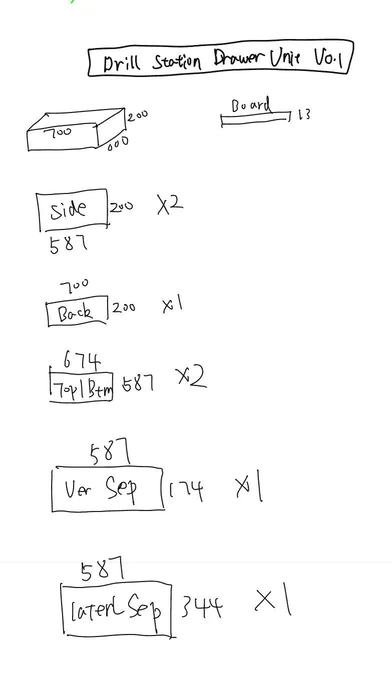 Drill Station Drawer Unit V0.1
700
200
600
Board
13
Side 200 X2
587
700
Back 200 X1
674
Top/Btm 587 X2
587
Ver Sep 174 X1
587
laterl Sep 344 X1